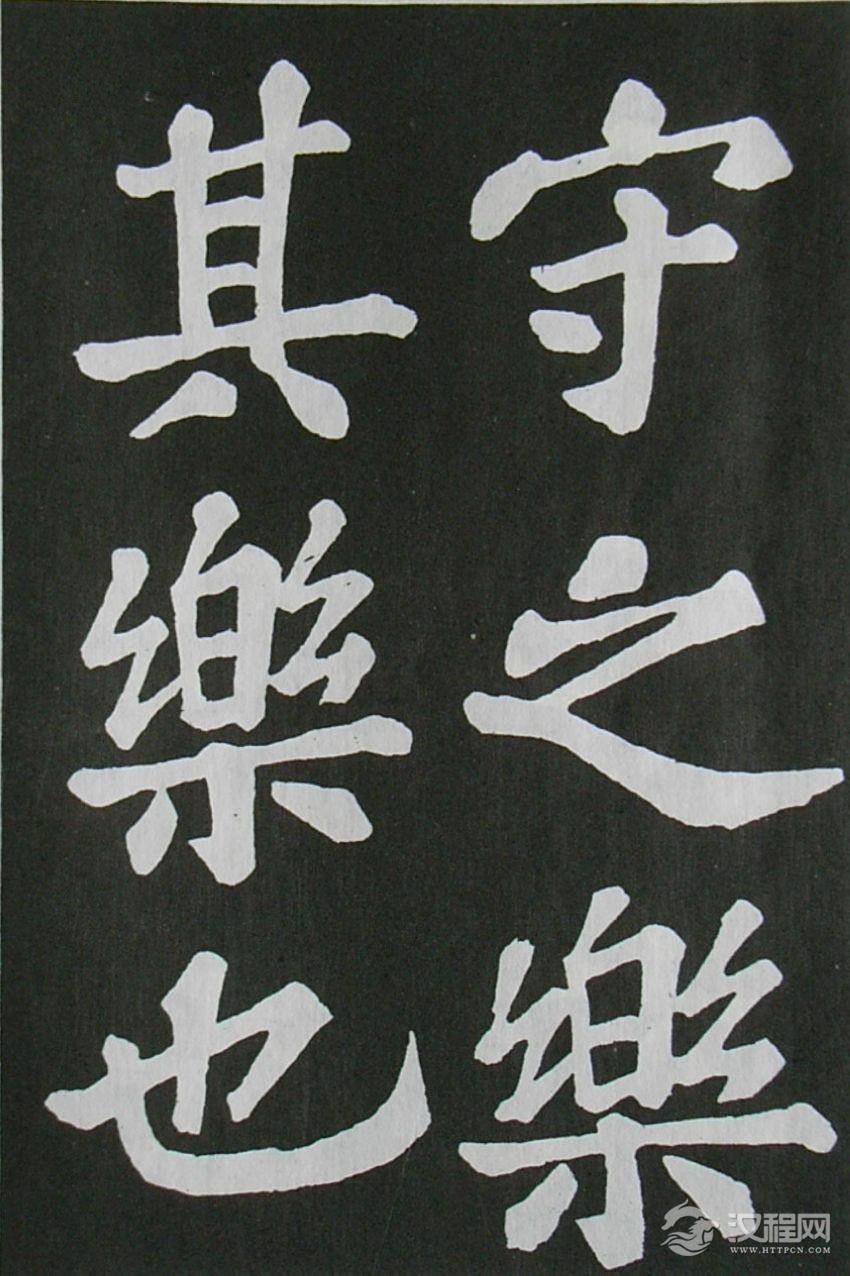 守之樂
其樂也
汉程网
WWW.HTTPCN.COM